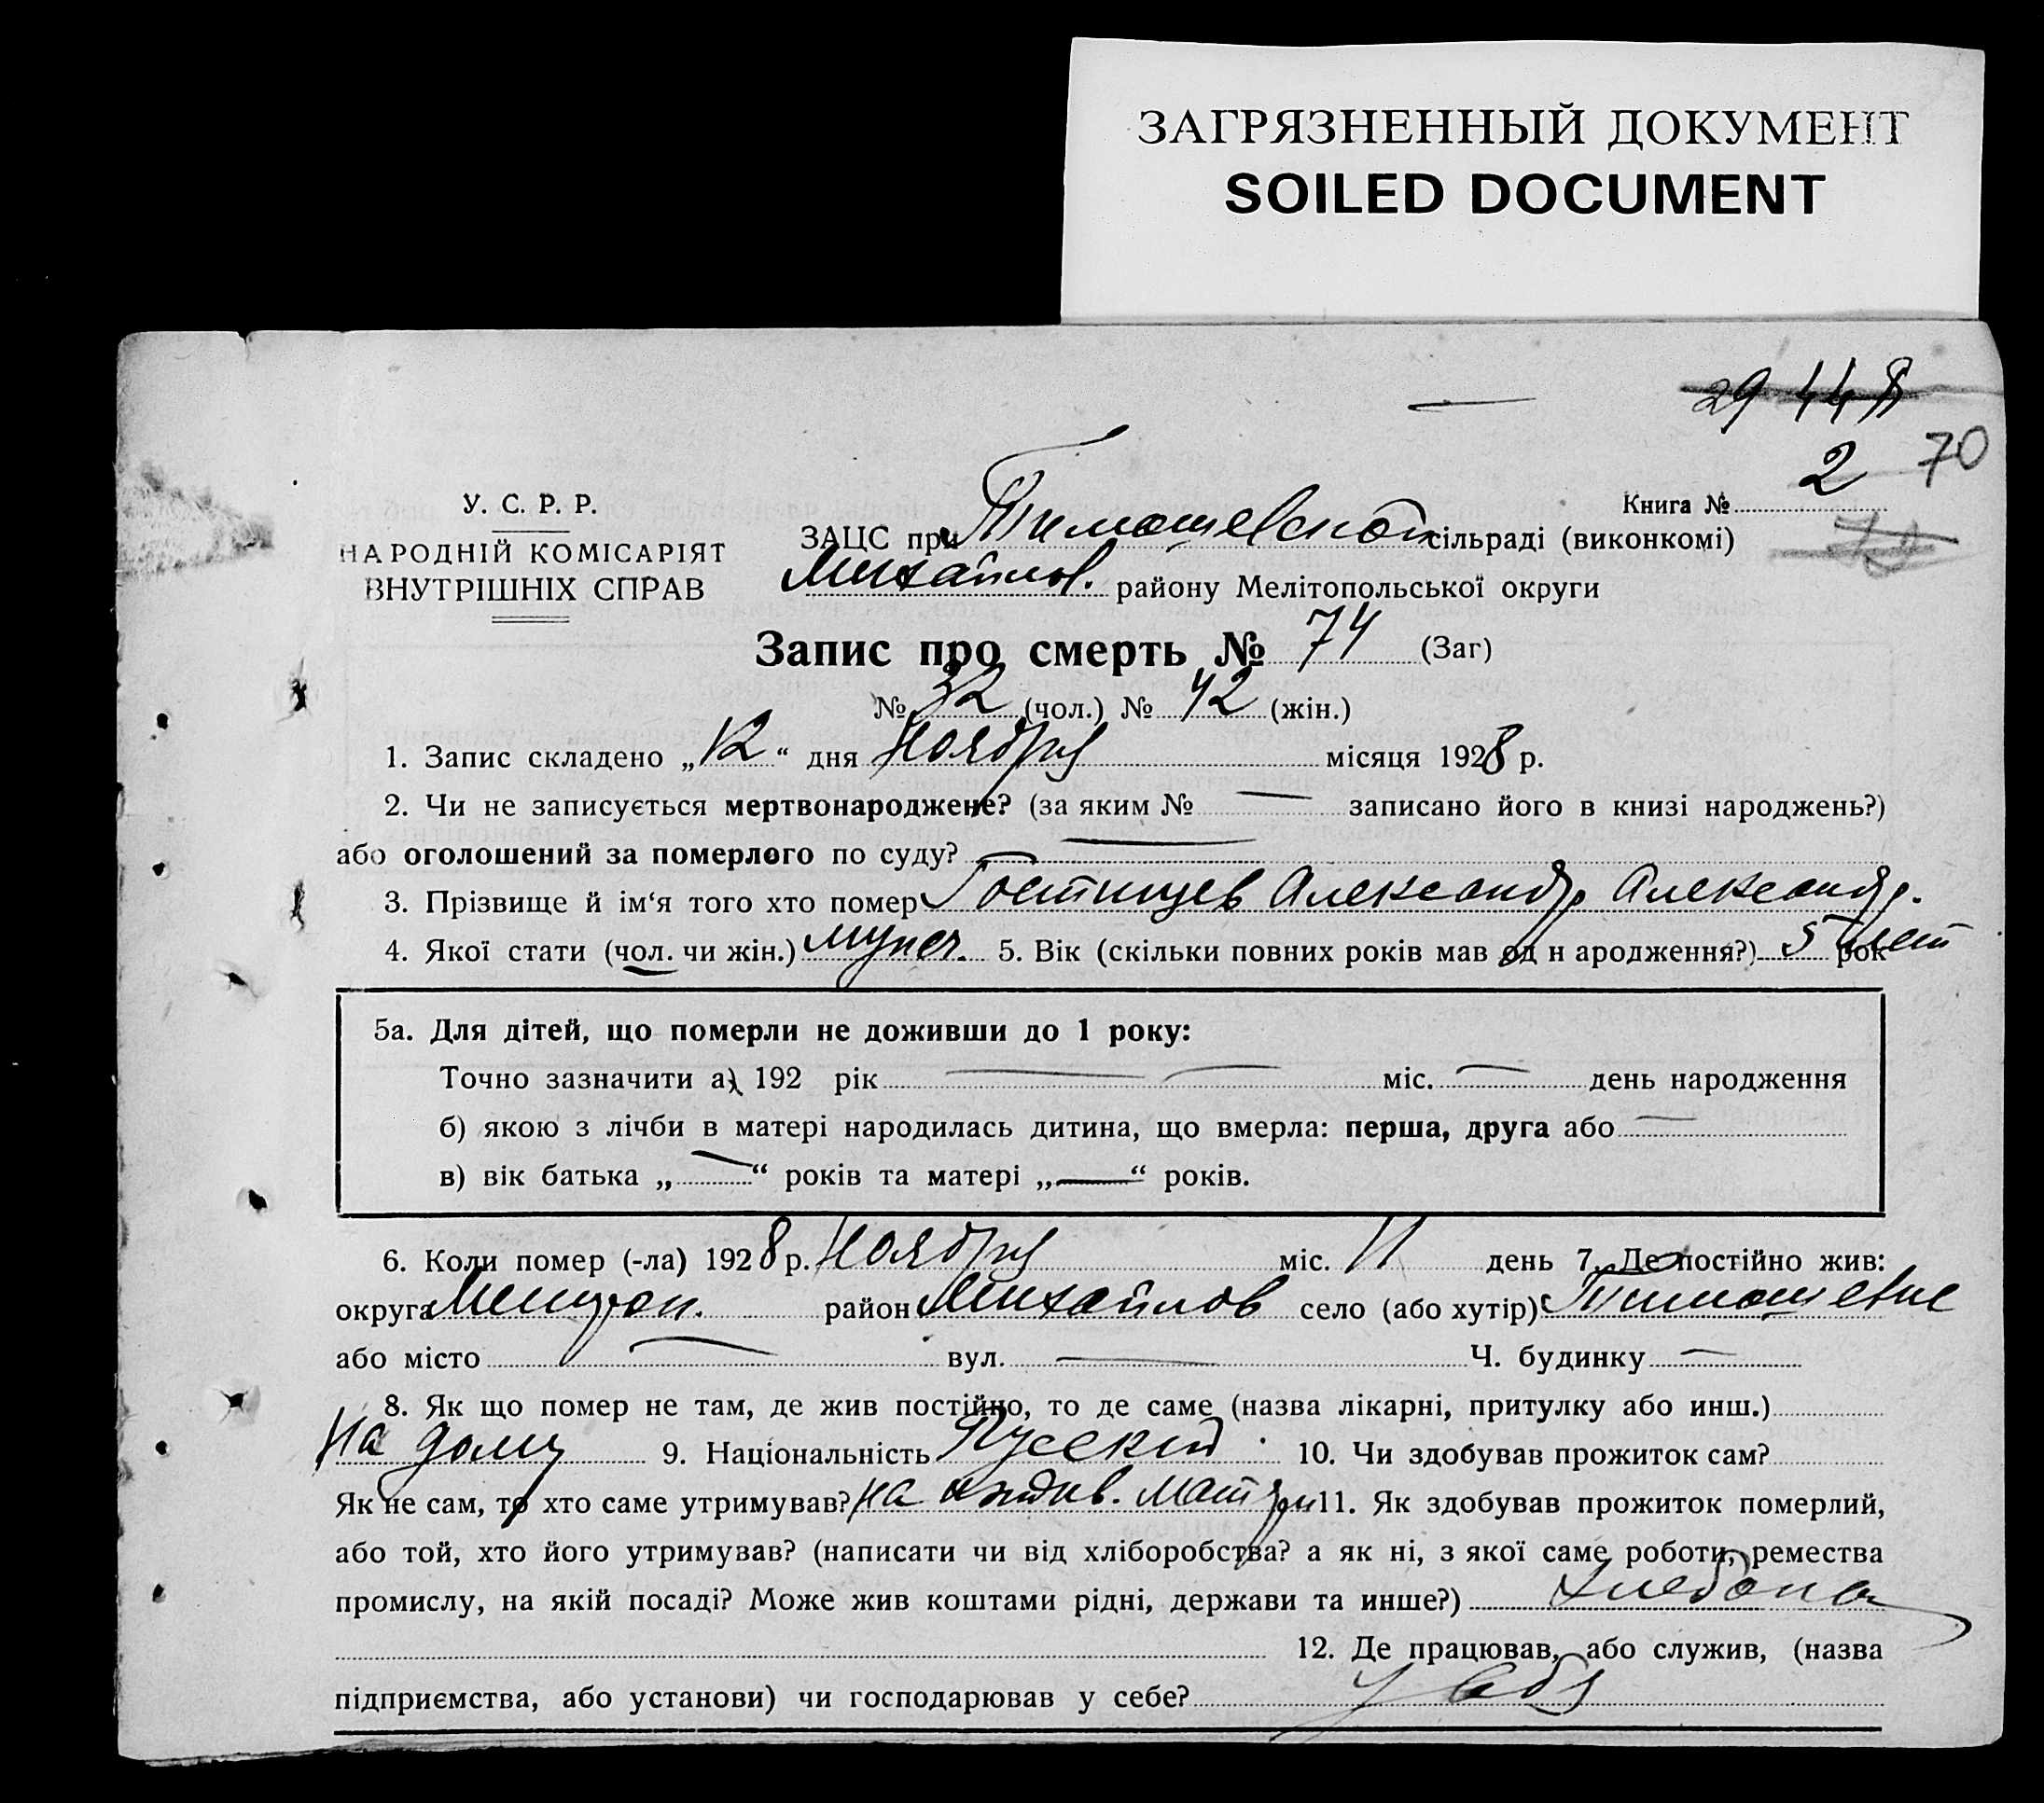 ЗАГРЯЗНЕННЫЙ ДОКУМЕНТ
SOILED DOCUMENT
29 44
2 70
Книга №
У. С. Р. Р.
НАРОДНІЙ КОМІСАРІЯТ
ВНУТРІШНІХ СПРАВ
ЗАЦС при Тимошевской сільраді (виконкомі)
Михайлов. району Мелітопольської округи
Запис про смерть № 74 (Заг)
№ 32 (чол.) № 42 (жін.)
1. Запис складено „12“ дня Ноября місяця 1928 р.
2. Чи не записується мертвонароджене? (за яким № — записано його в книзі народжень?)
або оголошений за померлого по суду? —
3. Прізвище й ім‘я того хто помер Гостищев Александр Александр.
4. Якої стати (чол. чи жін.) мужск. 5. Вік (скільки повних років мав од н ародження?) 5 рок лет
5а. Для дітей, що померли не доживши до 1 року:
Точно зазначити а) 192 рік — — міс. — день народження
б) якою з лічби в матері народилась дитина, що вмерла: перша, друга або —
в) вік батька „—“ років та матері „—“ років.
6. Коли помер (-ла) 1928 р. Ноября міс. 11 день 7. Де постійно жив:
округа Мелитоп. район Михайлов село (або хутір) Тимошевке
або місто — вул. — Ч. будинку —
8. Як що помер не там, де жив постійно, то де саме (назва лікарні, притулку або инш.)
на дому 9. Національність Русский 10. Чи здобував прожиток сам?
Як не сам, то хто саме утримував? на иждив. матери 11. Як здобував прожиток померлий,
або той, хто його утримував? (написати чи від хліборобства? а як ні, з якої саме роботи, ремества
промислу, на якій посаді? Може жив коштами рідні, держави та инше?) хлебопа
12. Де працював, або служив, (назва
підприємства, або установи) чи господарював у себе? у себя